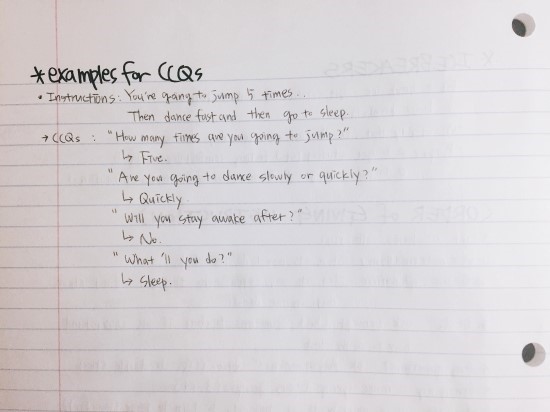 * examples for CCQs
• Instructions: You're going to jump 5 times..
Then dance fast and then go to sleep.
→ CCQs : "How many times are you going to jump?"
↳ Five.
"Are you going to dance slowly or quickly?"
↳ Quickly
"Will you stay awake after?"
↳ No.
"What'll you do?"
↳ Sleep.